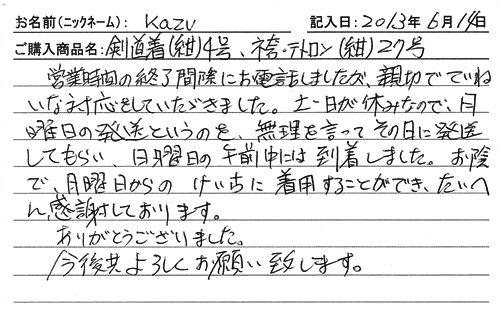 お名前(ニックネーム): Kazu 記入日:2013年6月14日
ご購入商品名:剣道着(紺)4号、袴・テトロン(紺)27号
営業時間の終了間際にお電話しましたが、親切でていね
いな対応をしていただきました。土・日が休みなので、月
曜日の発送というのを、無理を言ってその日に発送
してもらい、日曜日の午前中には到着しました。お陰
で、月曜日からの けいこに着用することができ、たいへ
ん感謝しております。
ありがとうございました。
今後共よろしくお願い致します。